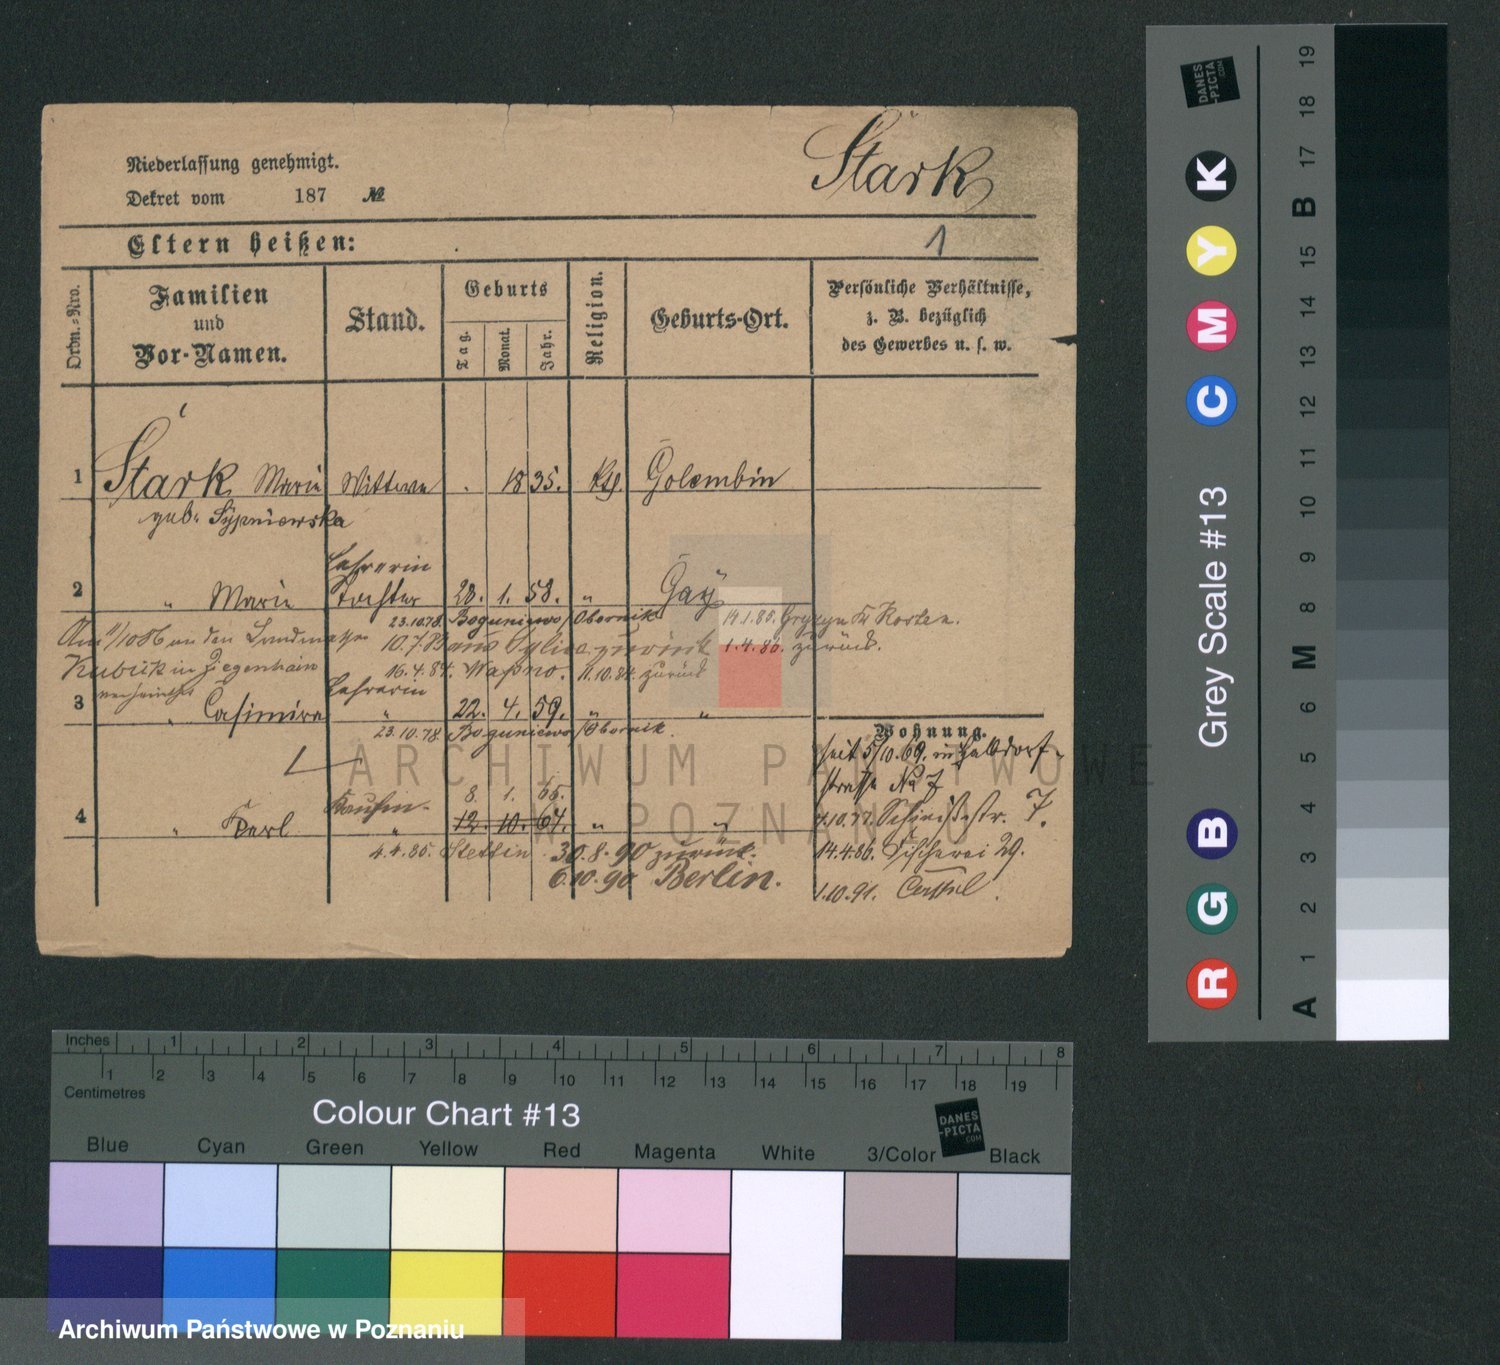 Niederlassung genehmigt.
Dekret vom 187 №
Stark
Eltern heißen:
1
Ordn.-Nro.
Familien
und
Vor-Namen.
Stand.
Geburts
Tag.
Monat.
Jahr.
Religion.
Geburts-Ort.
Persönliche Verhältnisse,
z. B. bezüglich
des Gewerbes u. s. w.
1 Stark Marie Wittwe 1835. kth. Golembin
geb. Sypniewska
Lehrerin
2 " Marie Tochter 28. 1. 58. " Gay
23.10.78. Boguniewo/Obornik 14.1.80. Gryzyn Kr Kosten.
10.7.83 zurück 1.4.86. zurück.
Kubick in Ziegenhain
16.4.84. Wapno. 11.10.84 zurück
Lehrerin
3 " Casimira " 22. 4. 59. " "
23.10.78 Boguniewo/Obornik.
Wohnung.
seit 5/10.69. in Halbdorf-
strasse No 7
8. 1. 65.
4 " Karl " 12. 10. 64. " "
7.
4.4.85. Stettin 30.8.90 zurück.
14.4.86. Fischerei 29.
6.10.90 Berlin.
1.10.91.
ARCHIWUM PAŃSTWOWE
W POZNANIU
Inches 1 2 3 4 5 6 7 8
1 2 3 4 5 6 7 8 9 10 11 12 13 14 15 16 17 18 19
Centimetres
Colour Chart #13
DANES
-PICTA
.COM
Blue Cyan Green Yellow Red Magenta White 3/Color Black
Grey Scale #13
R G B C M Y K
DANES
-PICTA
.COM
A 1 2 3 4 5 6 M 8 9 10 11 12 13 14 15 B 17 18 19
Archiwum Państwowe w Poznaniu